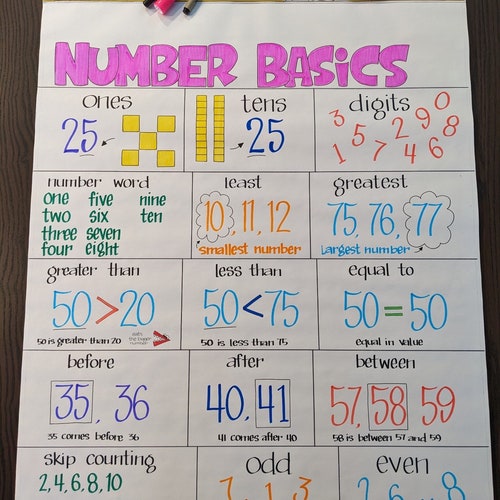 NUMBER BASICS
ones
25
tens
25
digits
3 5 2 9 0
1 7 4 6 8
number word
one five nine
two six ten
three seven
four eight
least
10, 11, 12
smallest number
greatest
75, 76, 77
largest number
greater than
50 > 20
50 is greater than 20
eats the bigger number
less than
50 < 75
50 is less than 75
equal to
50 = 50
equal in value
before
35, 36
35 comes before 36
after
40, 41
41 comes after 40
between
57, 58 59
58 is between 57 and 59
skip counting
2, 4, 6, 8, 10
odd
7 1 3
even
2 6 8